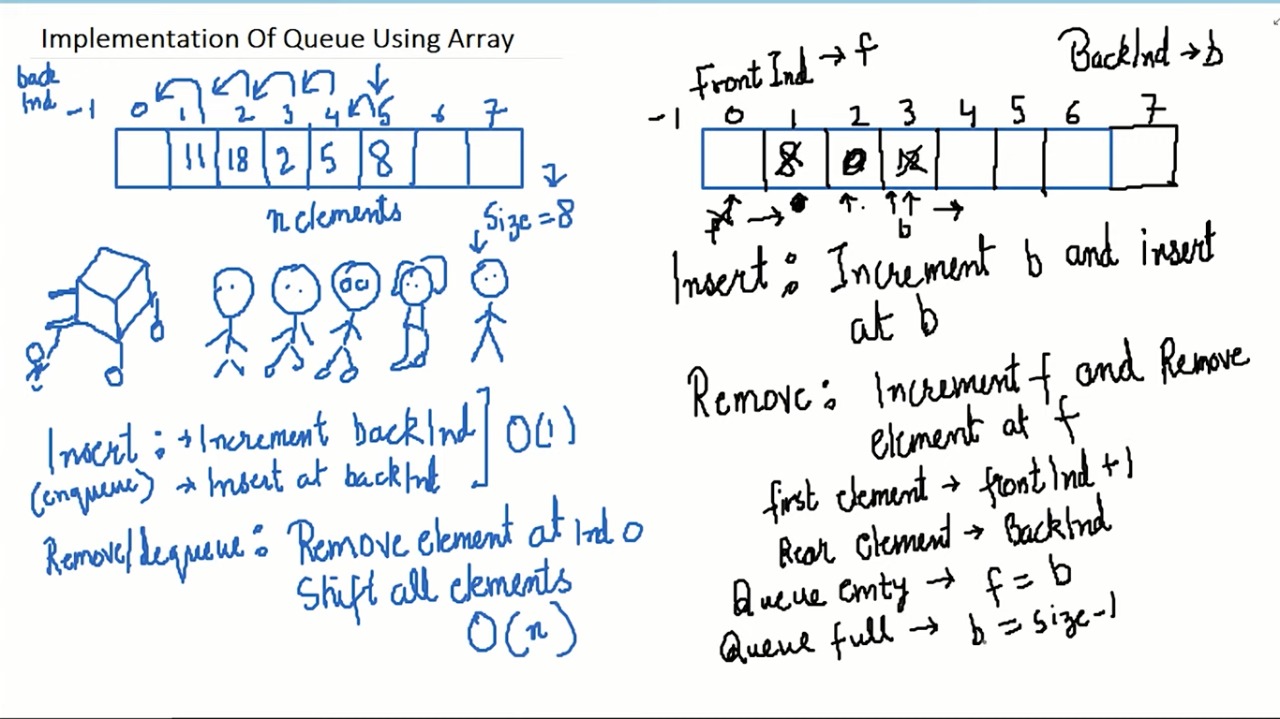 Implementation Of Queue Using Array
back
Ind -1 0 1 2 3 4 5 6 7
11 18 2 5 8
n elements
Size = 8
Insert : → Increment backInd
(enqueue) → Insert at backInd
O(1)
Remove/dequeue : Remove element at Ind 0
Shift all elements
O(n)
FrontInd → f
BackInd → b
-1 0 1 2 3 4 5 6 7
8
f → b →
Insert : Increment b and insert
at b
Remove : Increment f and Remove
element at f
first element → frontInd + 1
Rear Element → BackInd
Queue emty → f = b
Queue full → b = size - 1